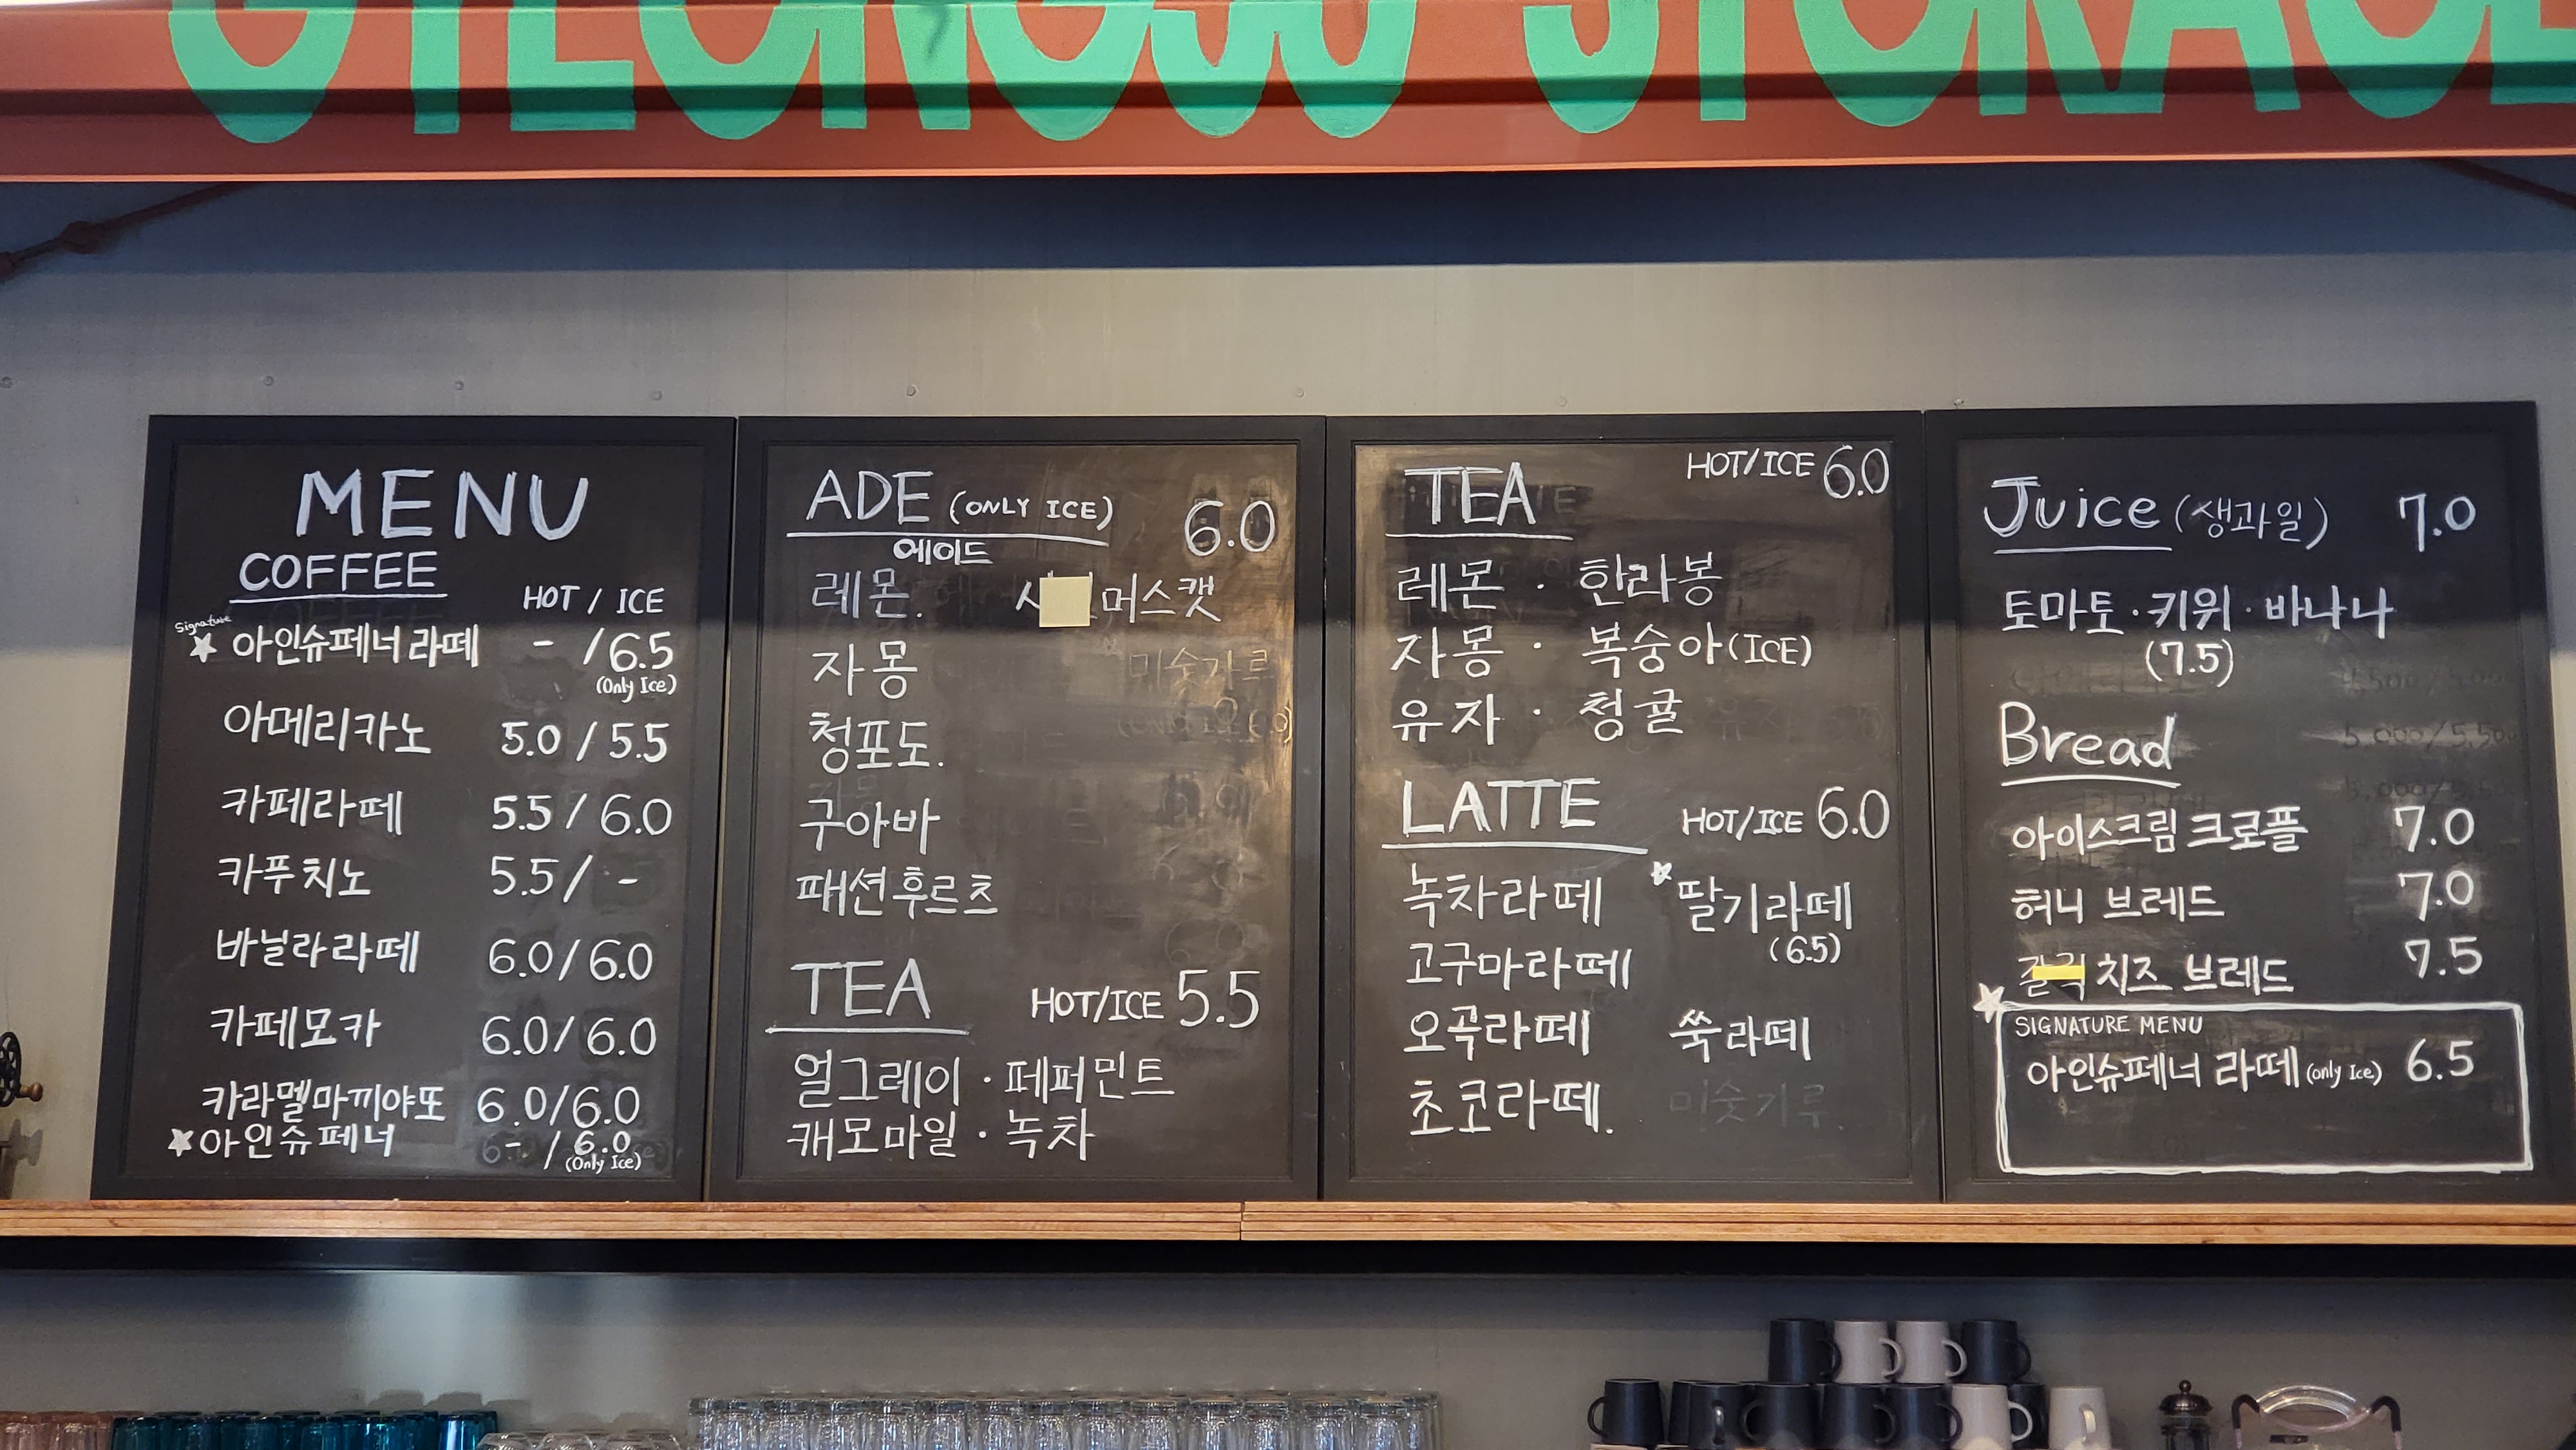 GYEONGJU STORAGE
MENU
COFFEE
HOT / ICE
Signature
★ 아인슈페너 라떼 - / 6.5
(Only Ice)
아메리카노 5.0 / 5.5
카페라떼 5.5 / 6.0
카푸치노 5.5 / -
바닐라라떼 6.0 / 6.0
카페모카 6.0 / 6.0
카라멜마끼야또 6.0 / 6.0
★ 아인슈페너 - / 6.0
(Only Ice)
ADE (ONLY ICE) 6.0
에이드
레몬. 머스캣
자몽
청포도.
구아바
패션후르츠
TEA HOT/ICE 5.5
얼그레이 · 페퍼민트
캐모마일 · 녹차
TEA HOT/ICE 6.0
레몬 · 한라봉
자몽 · 복숭아 (ICE)
유자 · 청귤
LATTE HOT/ICE 6.0
녹차라떼 ★딸기라떼
(6.5)
고구마라떼
오곡라떼 쑥라떼
초코라떼. 미숫가루.
Juice (생과일) 7.0
토마토 · 키위 · 바나나
(7.5)
Bread
아이스크림 크로플 7.0
허니 브레드 7.0
치즈 브레드 7.5
SIGNATURE MENU
아인슈페너 라떼 (only Ice) 6.5